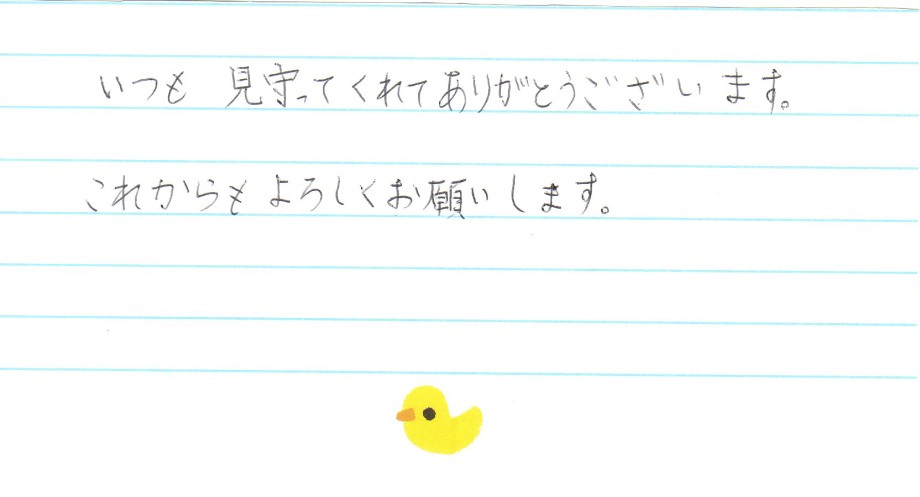 いつも 見守ってくれてありがとうございます。
これからもよろしくお願いします。